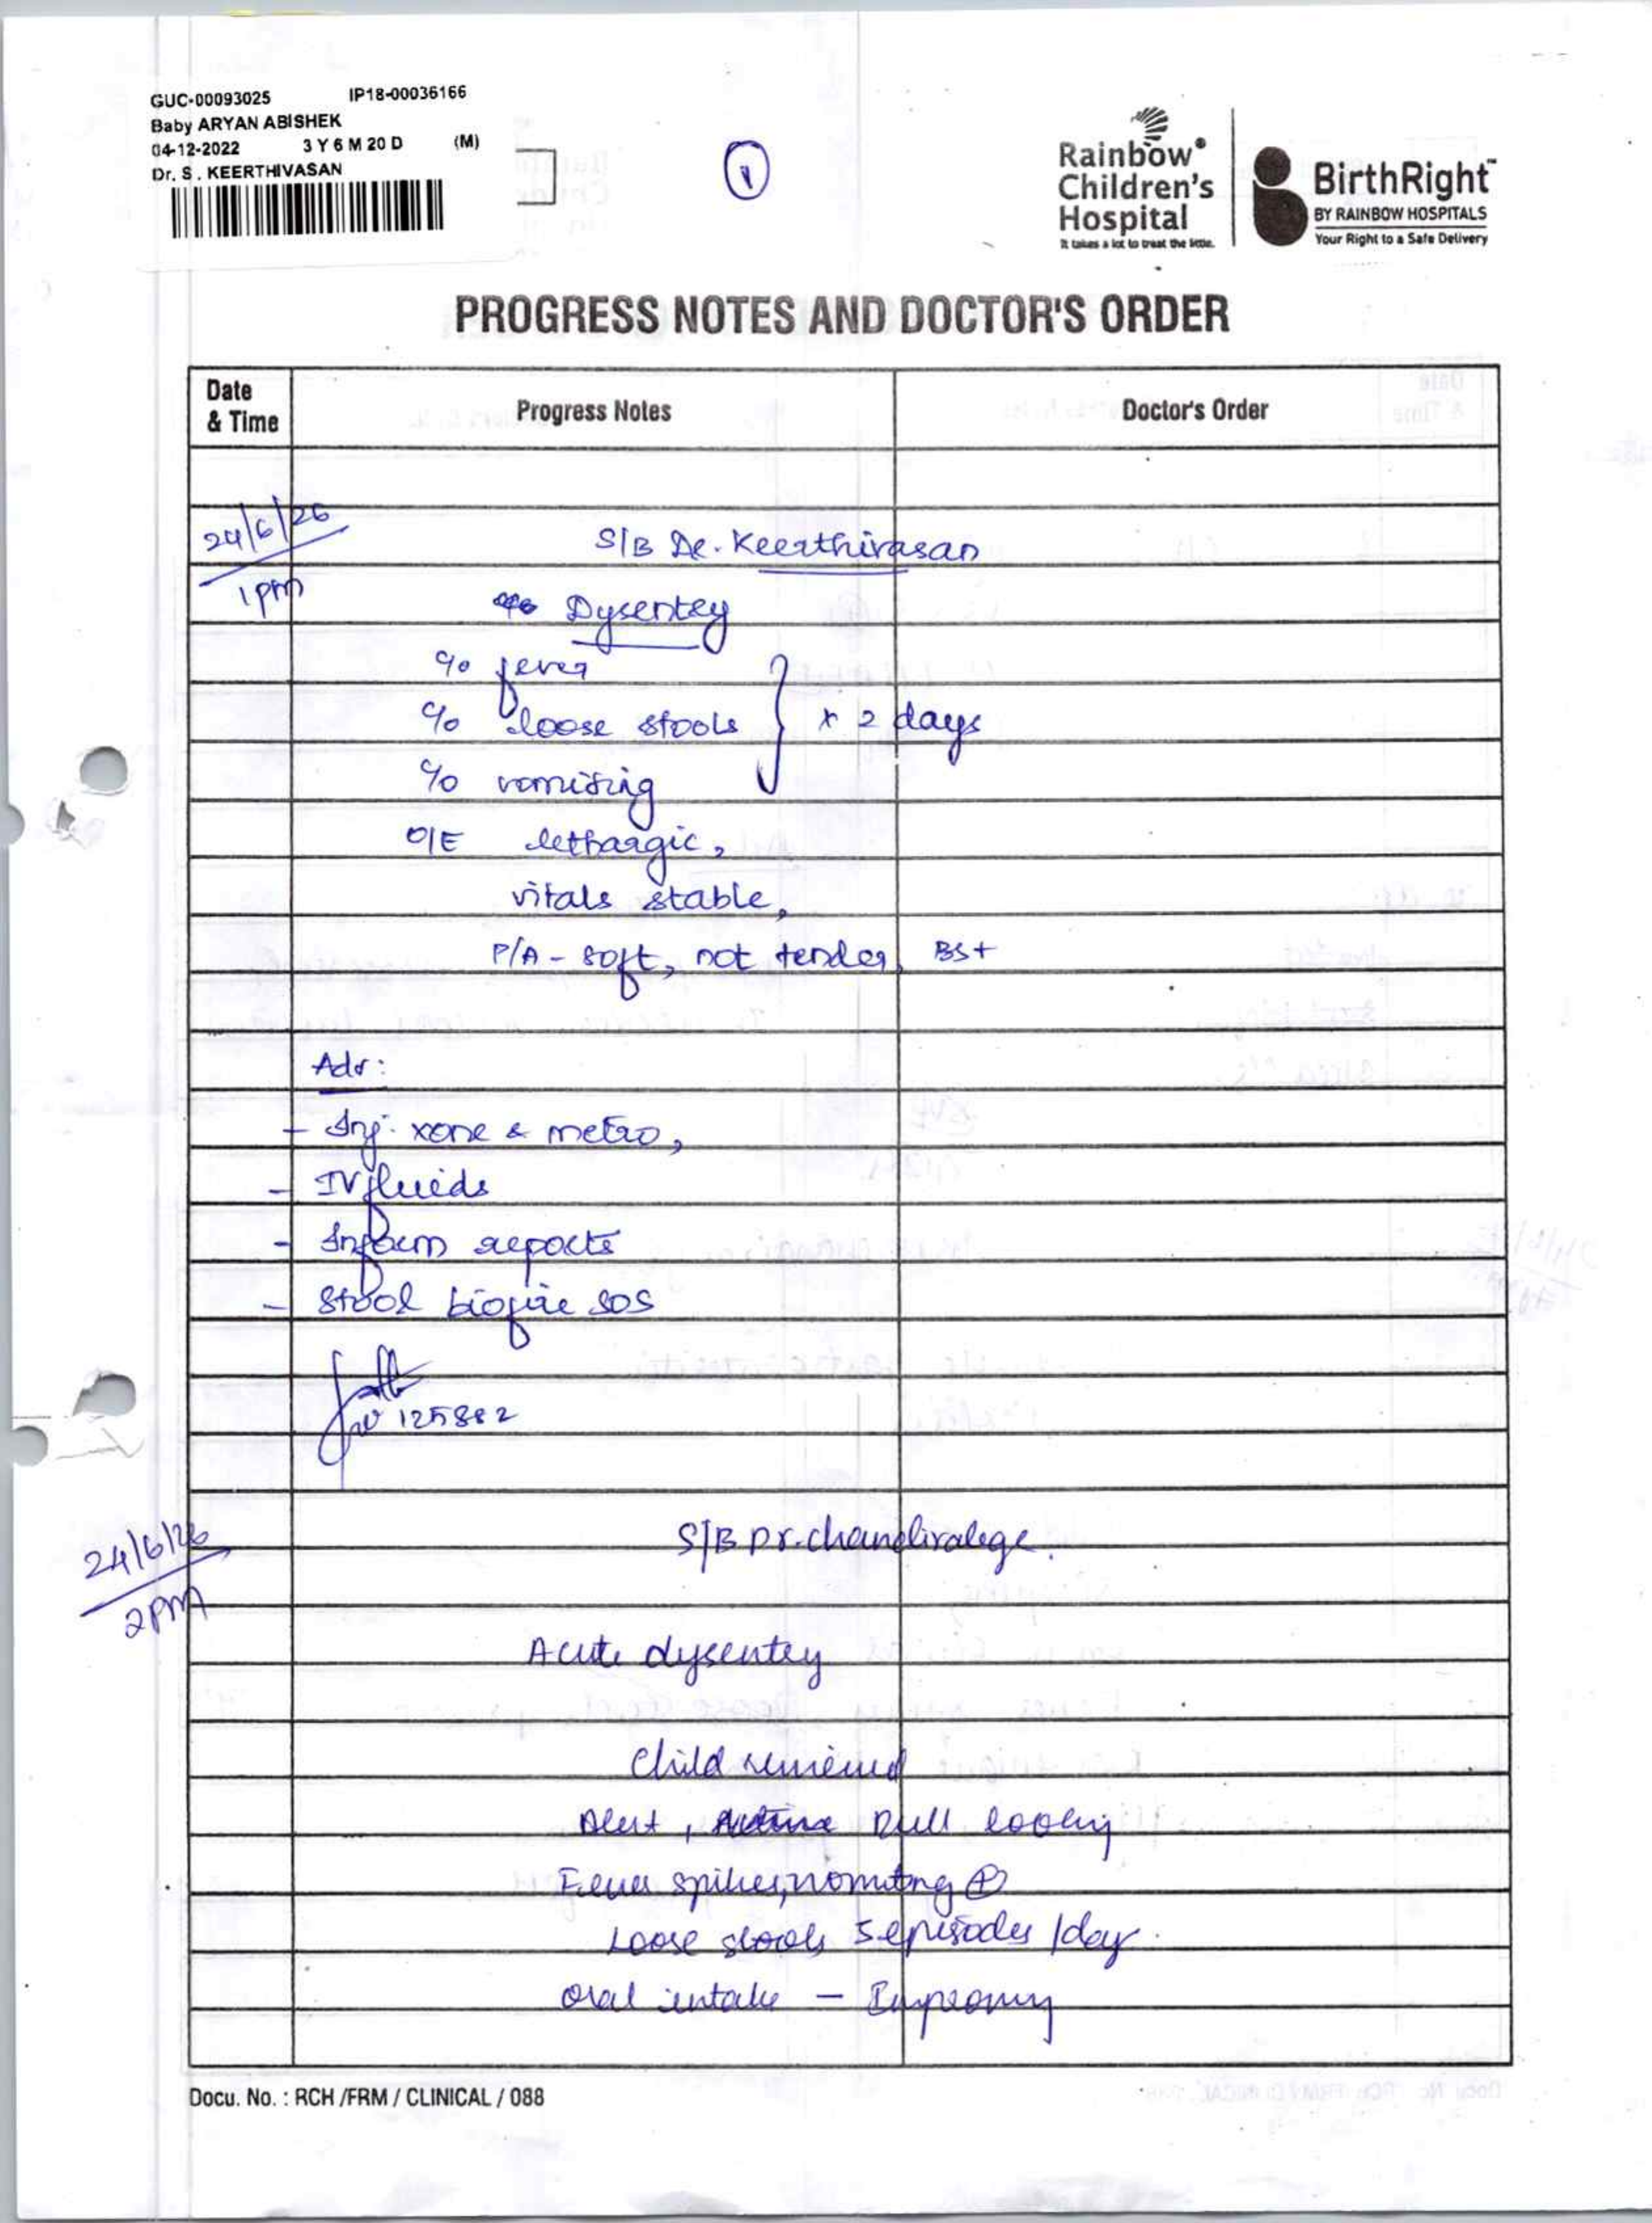 GUC-00093025 IP18-00036166
Baby ARYAN ABISHEK
04-12-2022 3 Y 6 M 20 D (M)
Dr. S . KEERTHIVASAN
1
Rainbow®
Children's
Hospital
It takes a lot to treat the little.
BirthRight™
BY RAINBOW HOSPITALS
Your Right to a Safe Delivery
PROGRESS NOTES AND DOCTOR'S ORDER
Date & Time Progress Notes Doctor's Order
24/6/26
1pm
S/B Dr. Keerthivasan
Dysentey
c/o fever
c/o loose stools } x 2 days
c/o vomiting
O/E lethargic,
vitals stable,
P/A - soft, not tender, BS+
Adv:
- Inj. xone & metro,
- IV fluids
- Inform reports
- Stool biofire SOS
125882
24/6/26
2PM
S/B Dr.
Acute dysentey
Child reviewed
Alert, Dull looking
Fever spikes, vomiting ⊕
Loose stools 5 episodes /day.
oral intake - Improving
Docu. No. : RCH /FRM / CLINICAL / 088